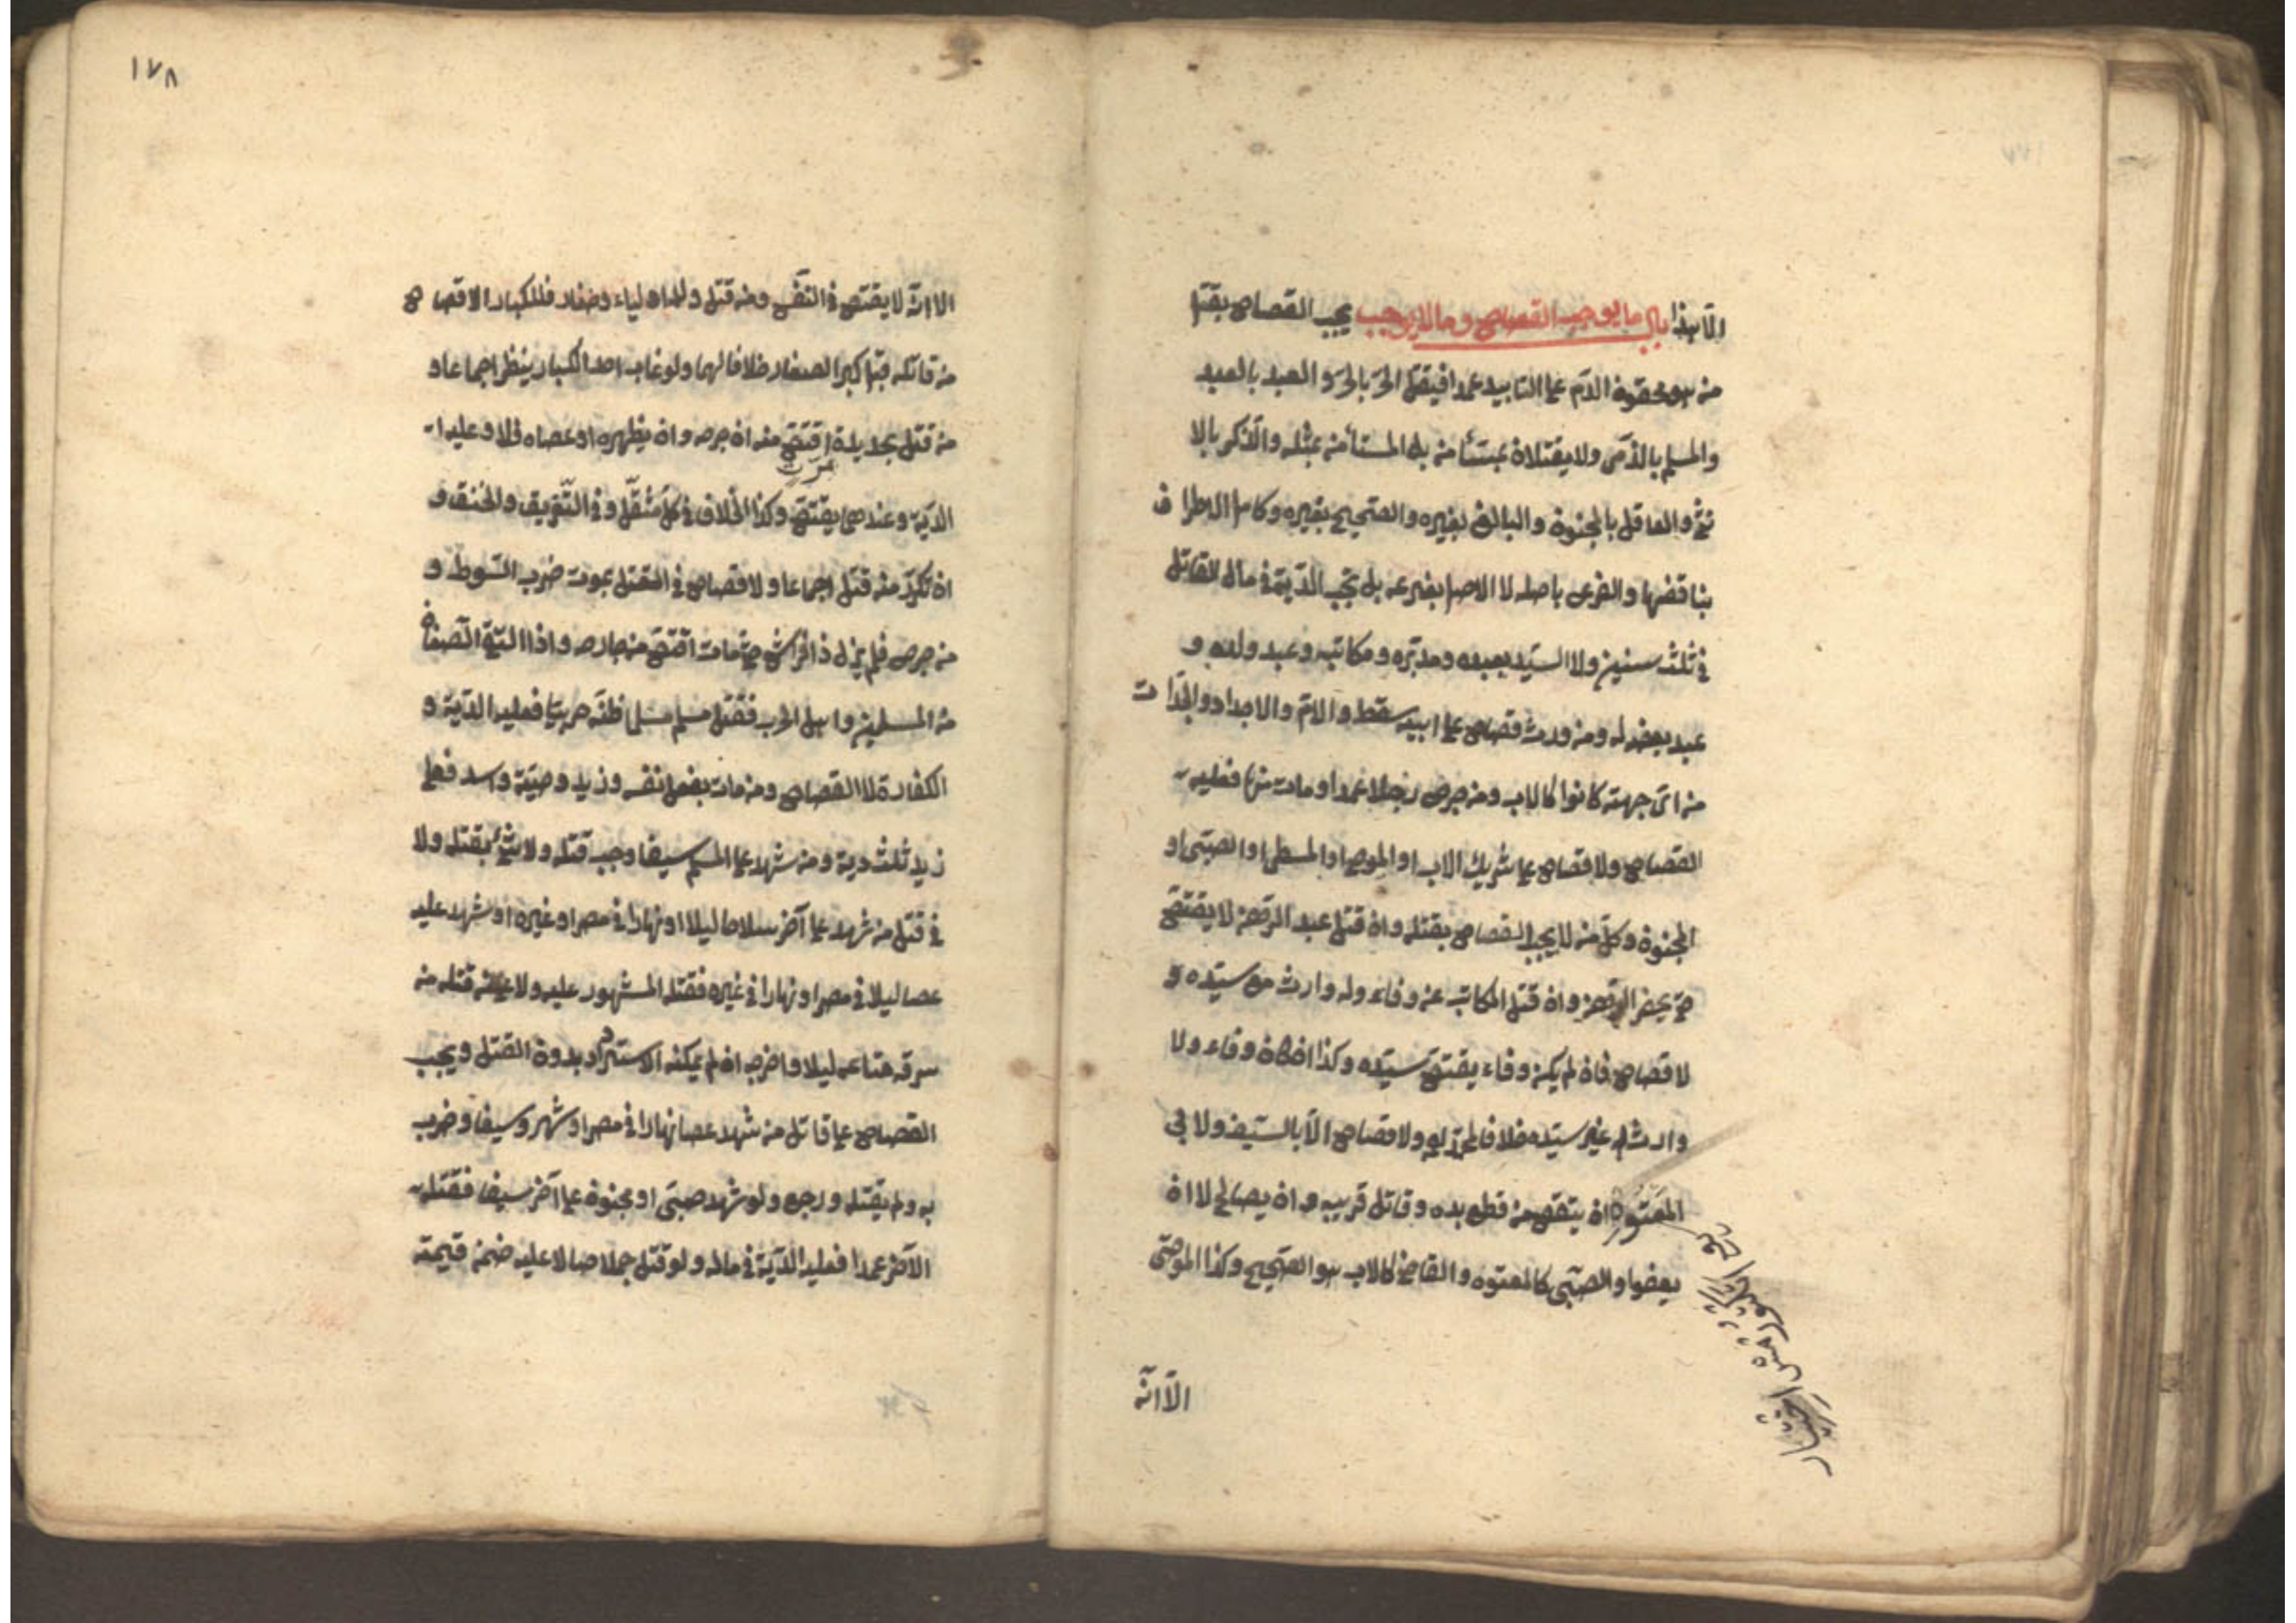 الا هذا باب ما يوجب القصاص وما لا يوجب يجب القصاص بقتل
من هو محقون الدم على التابيد عمدا فيقتل الحر بالحر والعبد بالعبد
والمسلم بالذمى ولا يقتلان بمستأمن بل المستأمن بمثله والذكر بالا
نثى والعاقل بالمجنون والبالغ بغيره والصحيح بغيره وكامل الاطراف
بناقصها والفرع باصله لا الاصل بفرعه بل تجب الدية فى مال القاتل
فى ثلث سنين ولا السيد بعبده ومدبره ومكاتبه وعبد ولده و
عبد بعضه له ومن ورث قصاص على ابيه سقط والام والاجداد والجدات
من اى جهته كانوا كالاب ومن جرح رجلا عمدا ومات منها فعليه
القصاص ولا قصاص على شريك الاب او المولى او المخطى او الصبى او
المجنون وكل من لا يجب القصاص بقتله وان قتل عبد الرهن لا يقتص
حتى يحضر الرهن وان قتل المكاتب عن وفاء وله وارث مع سيده و
لا قصاص فان لم يكن وفاء يقتص سيده وكذا ان كان وفاء ولا
وارث له غير سيده خلافا لمحمد ولا قصاص الا بالسيف ولا بى
المعتوه ان يقتص من قطع يده وقاتل قريبه وان يصالح لا ان
يعفوا والصبى كالمعتوه والقاضى كالاب هو الصحيح وكذا الموصى
الا انه
اختيار
١٧٨
الا انه لا يقتص فى النفس ومن قتل وله اولياء وصغار فللكبار الاقصاص
من قاتله قبل كبر الصغار خلافا لهما ولو غاب احد الكبار ينظر اجماعا و
من قتل بحديدة اقتص منه ان جرحه وان بظهره او عصاه فلا وعليه
الدية وعندهما يقتص وكذا الخلاف فى كل مثقل وفى التغريق والخنق و
ان تكرر منه قتل اجماعا ولا قصاص فى القتل بموت ضرب السوط و
من جرح فلم يزل ذا فراش حتى مات اقتص من جارحه واذا التقى الصفان
من المسلمين واهل الحرب فقتل مسلم مسلما ظنه حربيا فعليه الدية و
الكفارة لا القصاص ومن مات بفعل نفسه وزيد وحية واسد فعلى
زيد ثلث دية ومن شهد على المسلم سيفا وجب قتله ولا شئ بقتله ولا
فى قتل من شهد على آخر سلاحا ليلا او نهارا فى مصر او غيره او شهد عليه
عصا ليلا فى مصر او نهارا فى غيره فقتله المشهور عليه ولا على من قتله من
سرق متاعه ليلا واخرجه ان لم يمكنه الاسترداد بدون القتل ويجب
القصاص على قاتل من شهد عصا نهارا فى مصر او شهر وسيفا وضرب
به ولم يقتله ورجع ولو شهد صبى او مجنون على آخر سيفا فقتله
الآخر عمدا فعليه الدية فى ماله ولو قتل جملا صالا عليه ضمن قيمته